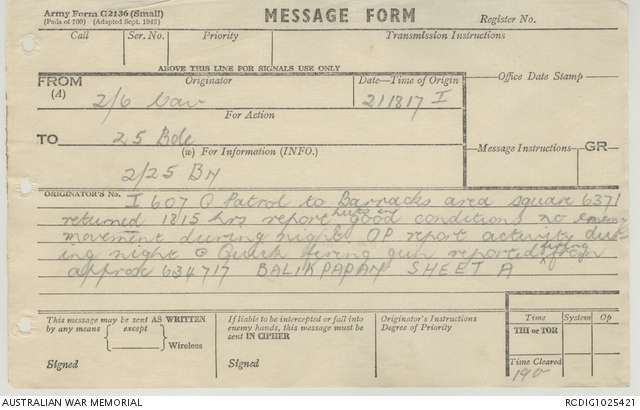 Army Form C2136 (Small)
(Pads of 100) (Adapted Sept. 1943)
MESSAGE FORM
Register No.
Call Ser. No. Priority Transmission Instructions
ABOVE THIS LINE FOR SIGNALS USE ONLY
FROM Originator Date—Time of Origin Office Date Stamp
(A) 2/6 Cav 211817 I
For Action
TO 25 Bde
(w) For Information (INFO.) Message Instructions GR
2/25 BN
ORIGINATOR'S No. I 607 O Patrol to Barracks area square 6371
returned 1815 hrs report huts in good conditions no enemy
movement during night OP report activity dur-
ing night Quick firing gun reported firing from
approx 634717 BALIKPAPAN SHEET A
This message may be sent AS WRITTEN
by any means except
Wireless
Signed
If liable to be intercepted or fall into
enemy hands, this message must be
sent IN CIPHER
Signed
Originator's Instructions
Degree of Priority
Time System Op
THI or TOR
Time Cleared
AUSTRALIAN WAR MEMORIAL RCDIG1025421